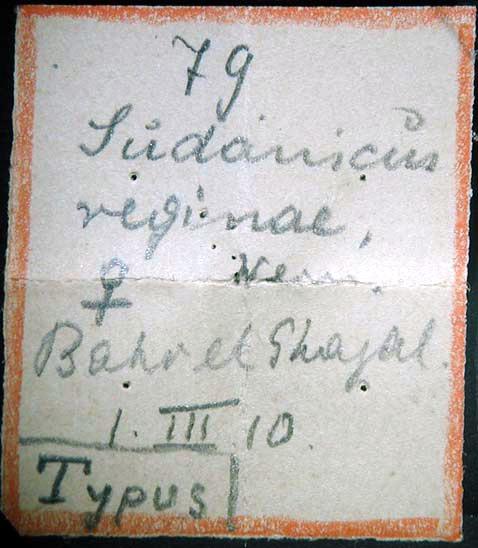 79
Sudanicus
reginae,
♀ Nem.
Bahr el Ghazal.
1. III. 10.
Typus